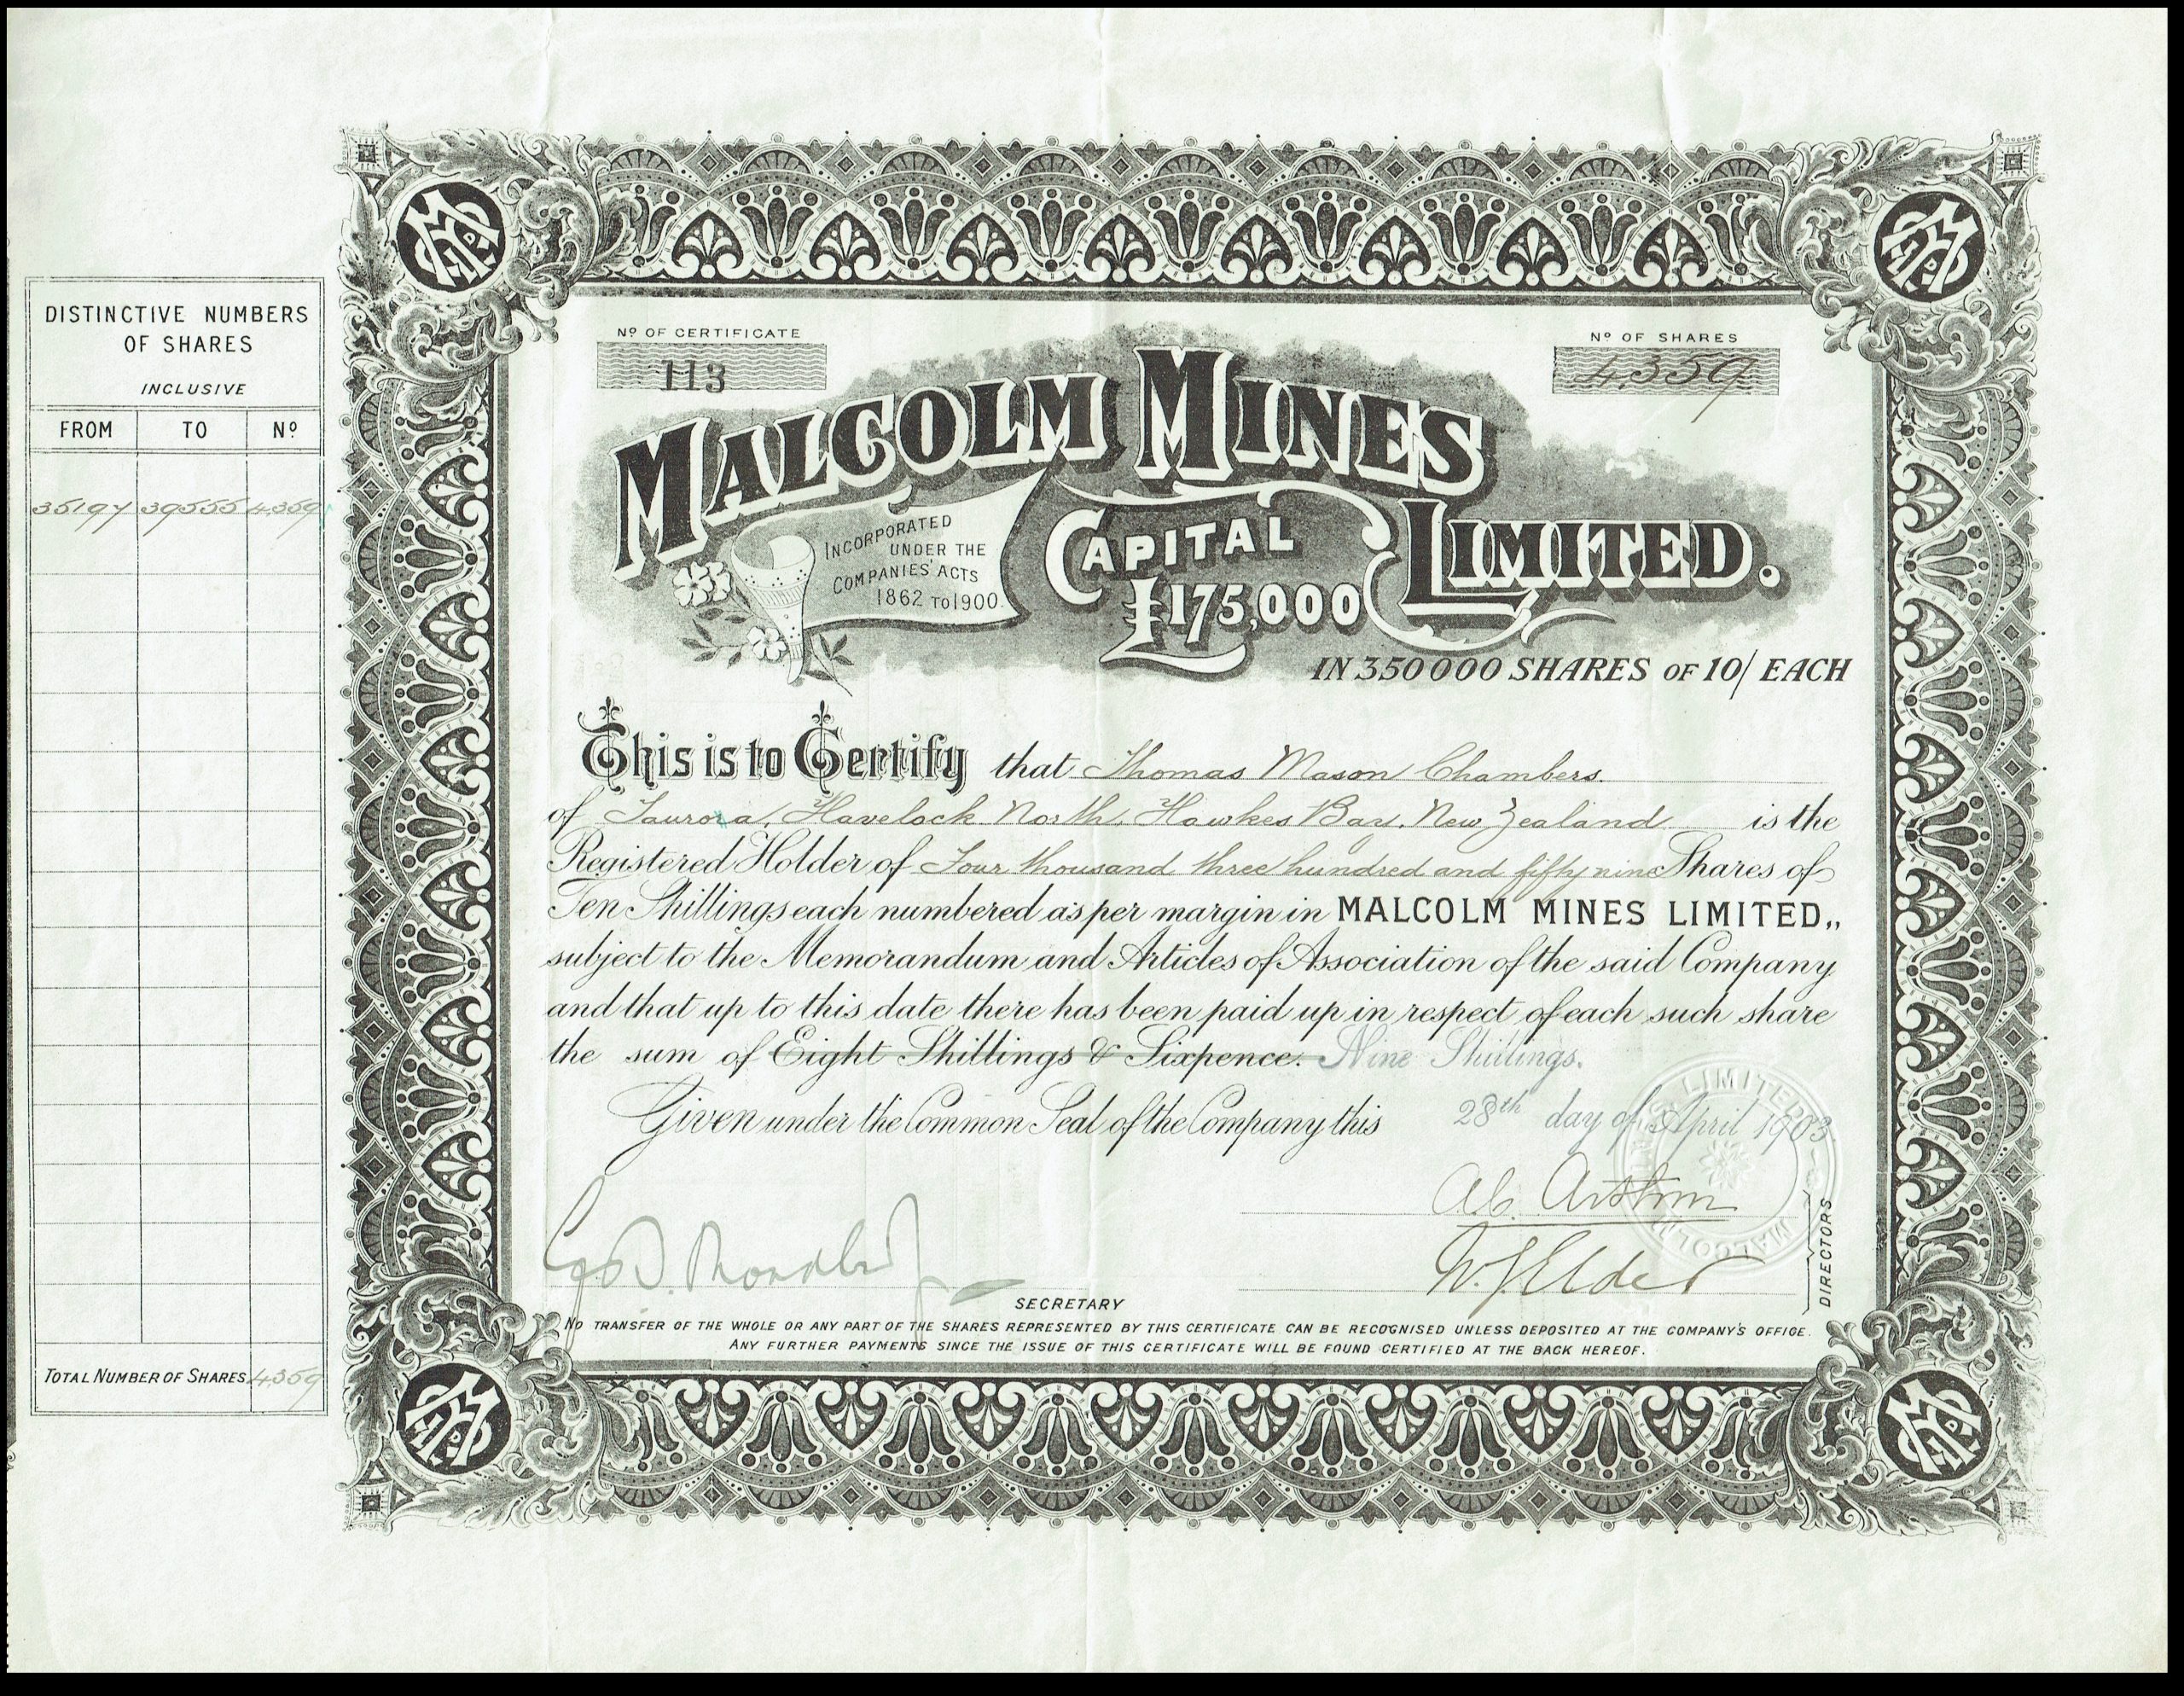 DISTINCTIVE NUMBERS
OF SHARES
INCLUSIVE
FROM TO Nº
35197 39555 4,359
TOTAL NUMBER OF SHARES 4,359
Nº OF CERTIFICATE
113
Nº OF SHARES
4,359
MALCOLM MINES
LIMITED.
INCORPORATED
UNDER THE
COMPANIES' ACTS
1862 TO 1900.
CAPITAL
£175,000
IN 350000 SHARES OF 10/ EACH
This is to Certify that Thomas Mason Chambers.
of Tauroa, Havelock North, Hawkes Bay, New Zealand is the
Registered Holder of Four thousand three hundred and fifty nine Shares of
Ten Shillings each numbered as per margin in MALCOLM MINES LIMITED,,
subject to the Memorandum and Articles of Association of the said Company
and that up to this date there has been paid up in respect of each such share
the sum of Eight Shillings & Sixpence. Nine Shillings.
Given under the Common Seal of the Company this 28th day of April 1903.
W. J. Elder
DIRECTORS
SECRETARY
NO TRANSFER OF THE WHOLE OR ANY PART OF THE SHARES REPRESENTED BY THIS CERTIFICATE CAN BE RECOGNISED UNLESS DEPOSITED AT THE COMPANY'S OFFICE.
ANY FURTHER PAYMENTS SINCE THE ISSUE OF THIS CERTIFICATE WILL BE FOUND CERTIFIED AT THE BACK HEREOF.
MALCOLM LIMITED